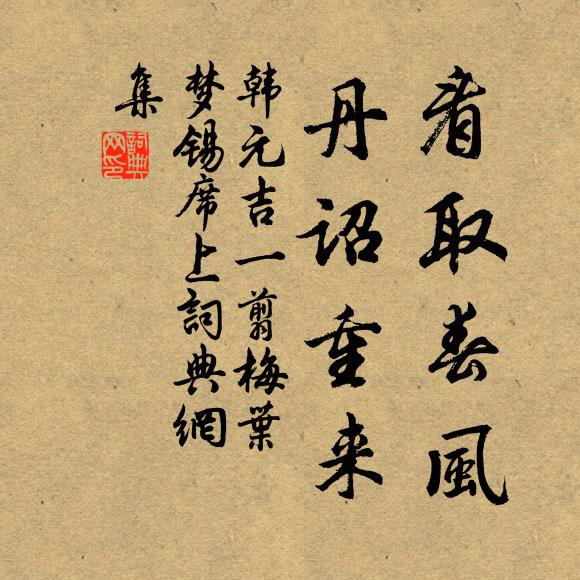 看取春風
丹诏重来
韩元吉一翦梅葉
梦锡席上詞典網
集
詞典网印